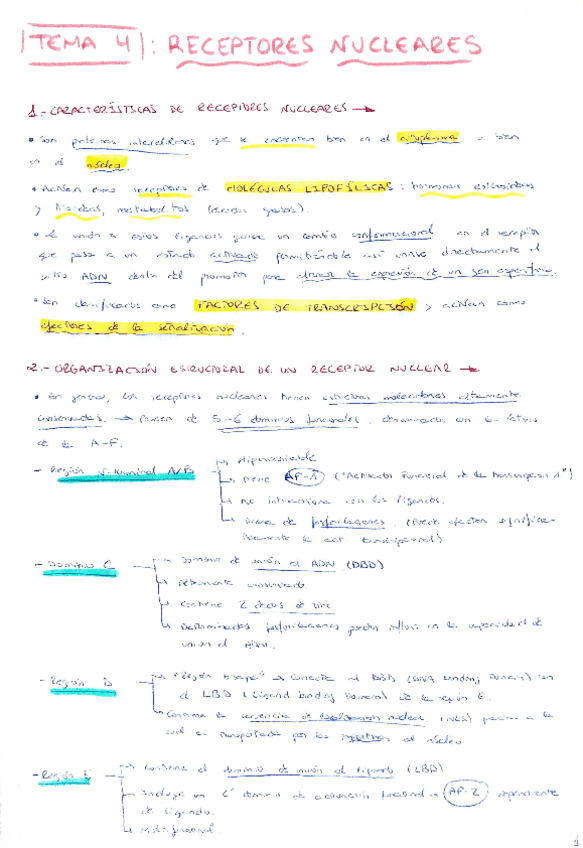 TEMA 4 : RECEPTORES NUCLEARES
1.- CARACTERÍSTICAS DE RECEPTORES NUCLEARES →
• Son proteínas intracelulares que se encuentran bien en el citoplasma o bien
en el núcleo.
• Actúan como receptores de MOLÉCULAS LIPOFÍLICAS : hormonas esteroideas
y tiroideas, metabolitos (excepto gases).
• La unión a estos ligandos genera un cambio conformacional en el receptor
que pasa a un estado activado permitiéndole así unirse directamente al
sitio ADN dentro del promotor para alterar la expresión de un gen específico.
• Son clasificados como FACTORES DE TRANSCRIPCIÓN y actúan como
efectores de la señalización.
2.- ORGANIZACIÓN ESTRUCTURAL DE UN RECEPTOR NUCLEAR →
• En general, los receptores nucleares tienen estructuras moleculares altamente
conservadas. → Poseen de 5-6 dominios funcionales, denominados con la letras
de la A-F.
- Región N-terminal A/B
→ Hipervariable
→ Tiene AF-1
→ No interacciona con los ligandos.
→ Diana de fosforilaciones.
- Dominio C
→ Dominio de unión al ADN (DBD)
→ Altamente conservado
→ Contiene 2 dedos de zinc
→ Determinadas fosforilaciones pueden influir en la capacidad de
unión al ADN.
- Región D
→ "Región bisagra" → Conecta el DBD (DNA binding Domain) con
el LBD (Ligand binding Domain) de la región E.
→ Contiene la secuencia de localización nuclear (NLS) gracias a la
cual es transportada por las importinas al núcleo
- Región E
→ Contiene el dominio de unión al ligando (LBD)
→ Incluye un 2º dominio de activación funcional → AF-2 dependiente
de ligando.
→ Multifuncional
1